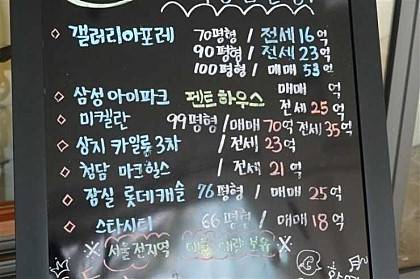 갤러리아포레 70평형 / 전세 16억
90평형 / 전세 23억
100평형 / 매매 53억
매매 억
◇ 삼성 아이파크 펜트하우스 전세 25억
◇ 미켈란 99평형 / 매매 70억 전세 35억
◇ 상지 카일룸 3차 / 전세 23억
◇ 청담 마크힐스 / 전세 21억
◇ 잠실 롯데캐슬 76평형 / 매매 25억
◇ 스타시티 66평형 / 매매 18억
※ 서울 전지역 매물 대량 보유 ※